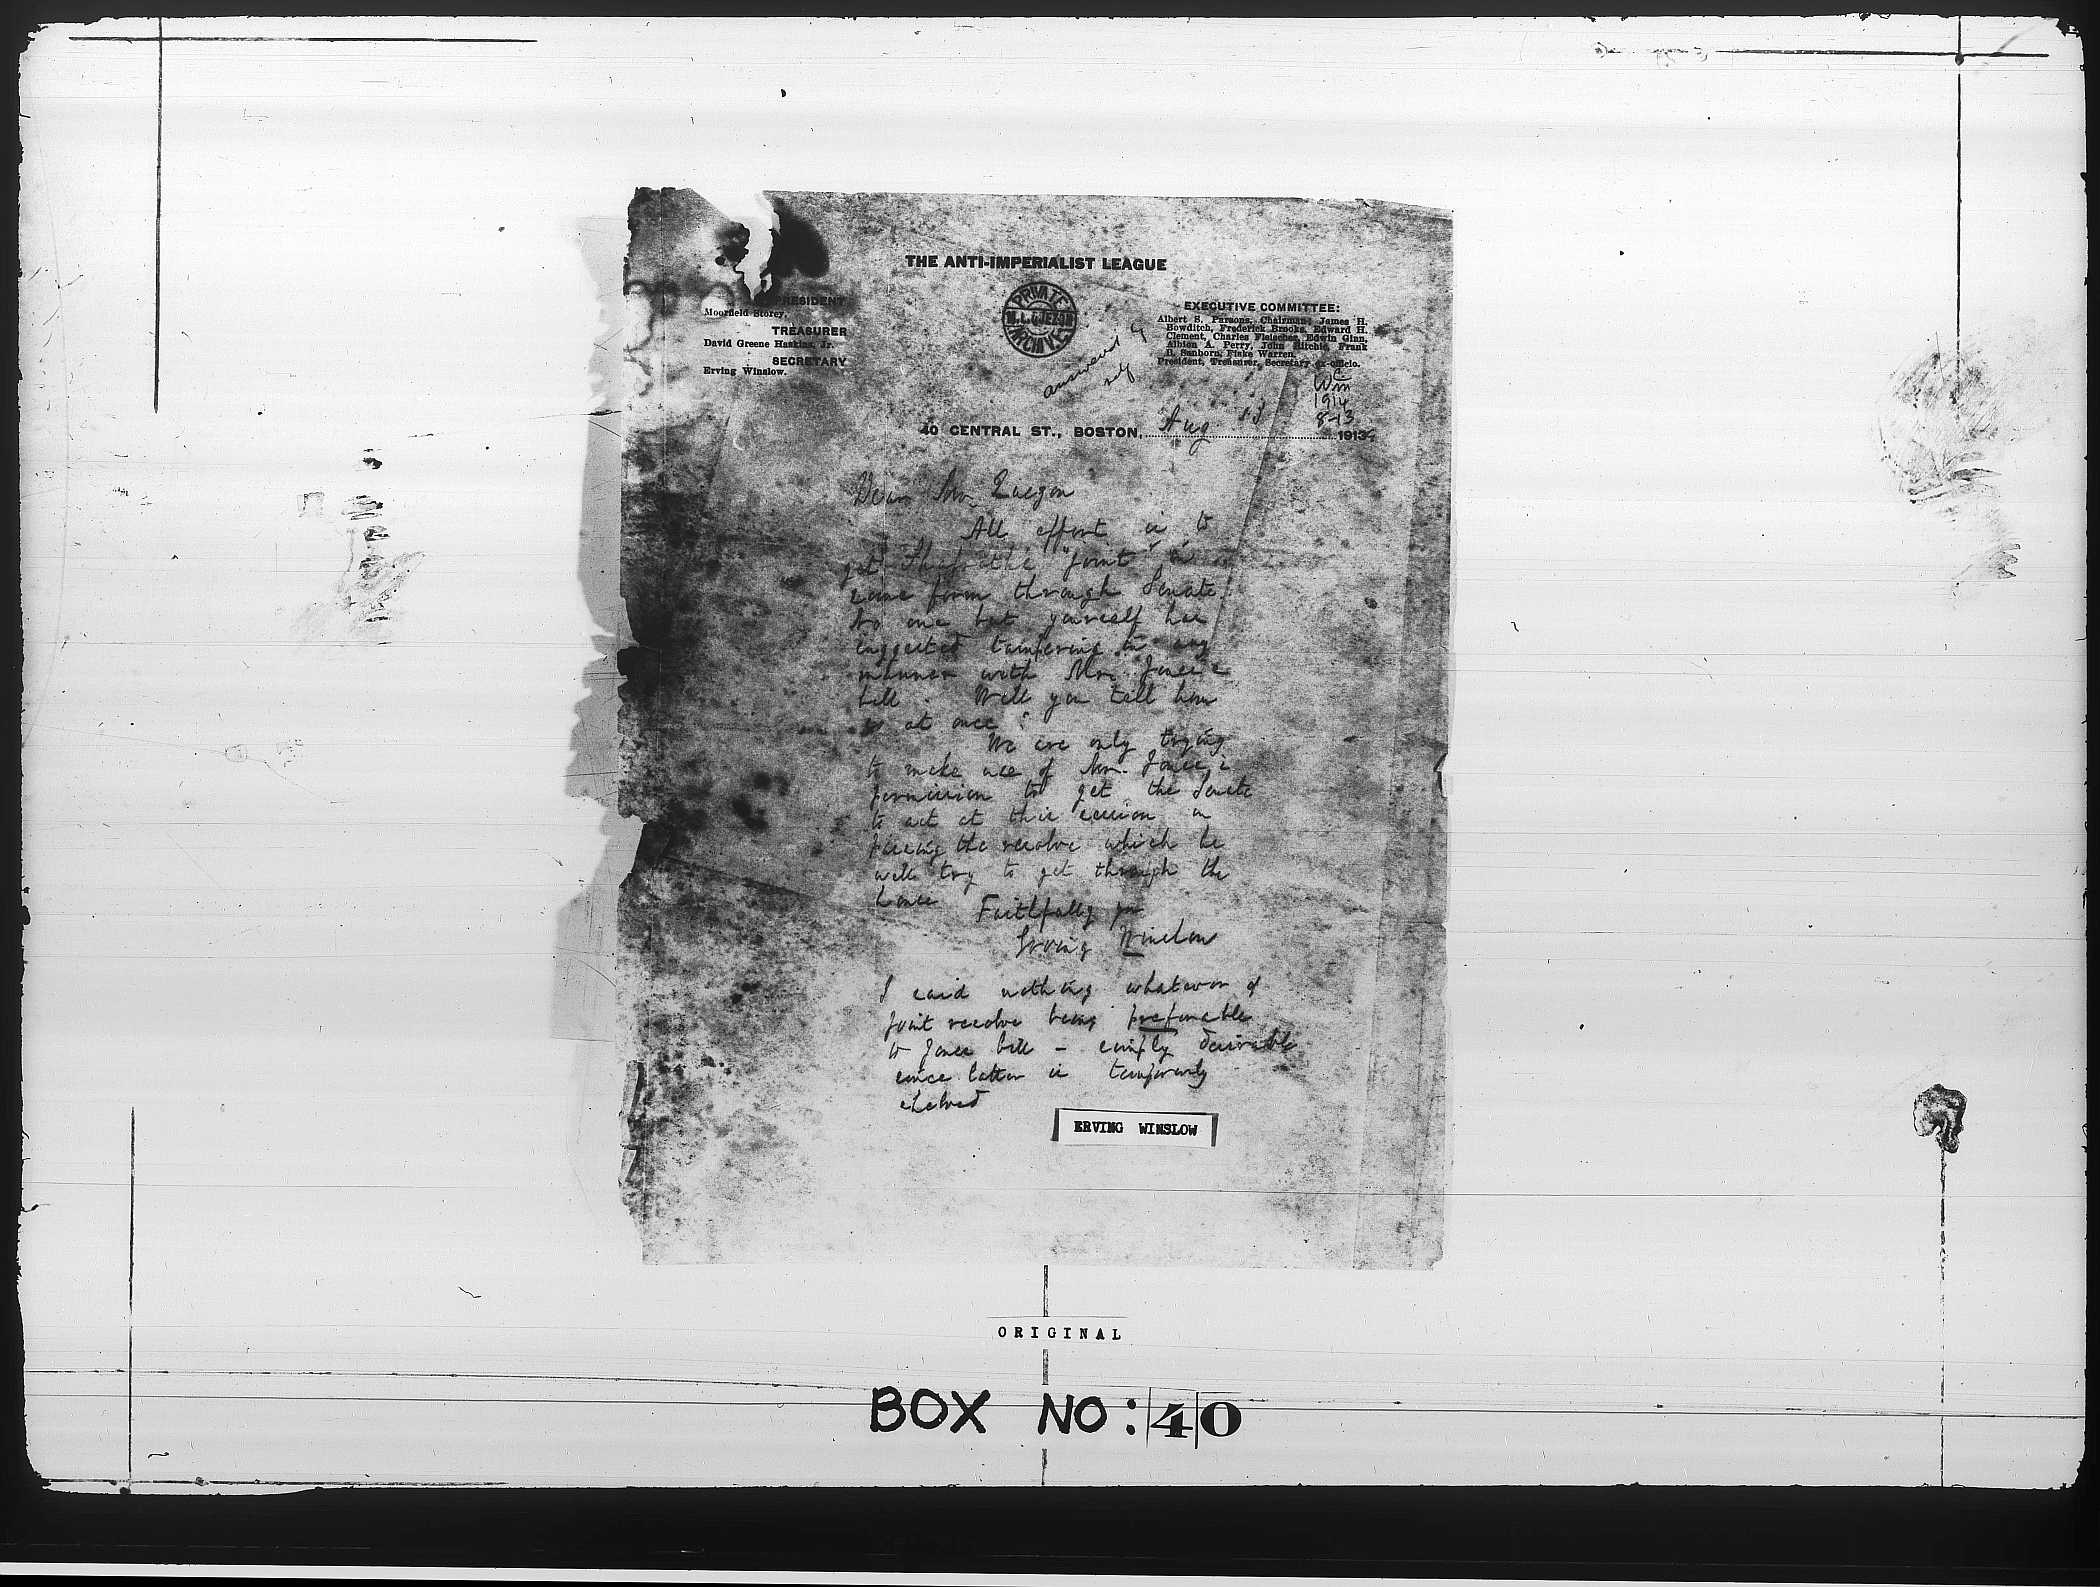 THE ANTI-IMPERIALIST LEAGUE
PRESIDENT
Moorfield Storey,
TREASURER
David Greene Haskins, Jr.
SECRETARY
Erving Winslow.
PRIVATE
M. L. QUEZON
ARCHIVE
answered
EXECUTIVE COMMITTEE:
Albert S. Parsons, Chairman; James H.
Bowditch, Frederick Brooks, Edward H.
Clement, Charles Fleischer, Edwin Ginn,
Albion A. Perry, John Ritchie, Frank
B. Sanborn, Fiske Warren.
President, Treasurer, Secretary ex-officio.
1914
8-13
40 CENTRAL ST., BOSTON, Aug 13 1913
Dear Mr. Quezon
All effort is to
get Shafroth's "joint" in
some form through Senate.
No one but yourself has
suggested tampering in any
manner with Mr. Jones's
bill. Will you tell him
so at once?
We are only trying
to make use of Mr. Jones's
permission to get the Senate
to act at this session in
passing the resolve which he
will try to get through the
house
Faithfully yrs
Erving Winslow
I said nothing whatever of
joint resolve being preferable
to Jones bill – simply desirable
since latter is temporarily
shelved
ERVING WINSLOW
ORIGINAL
BOX NO: 40